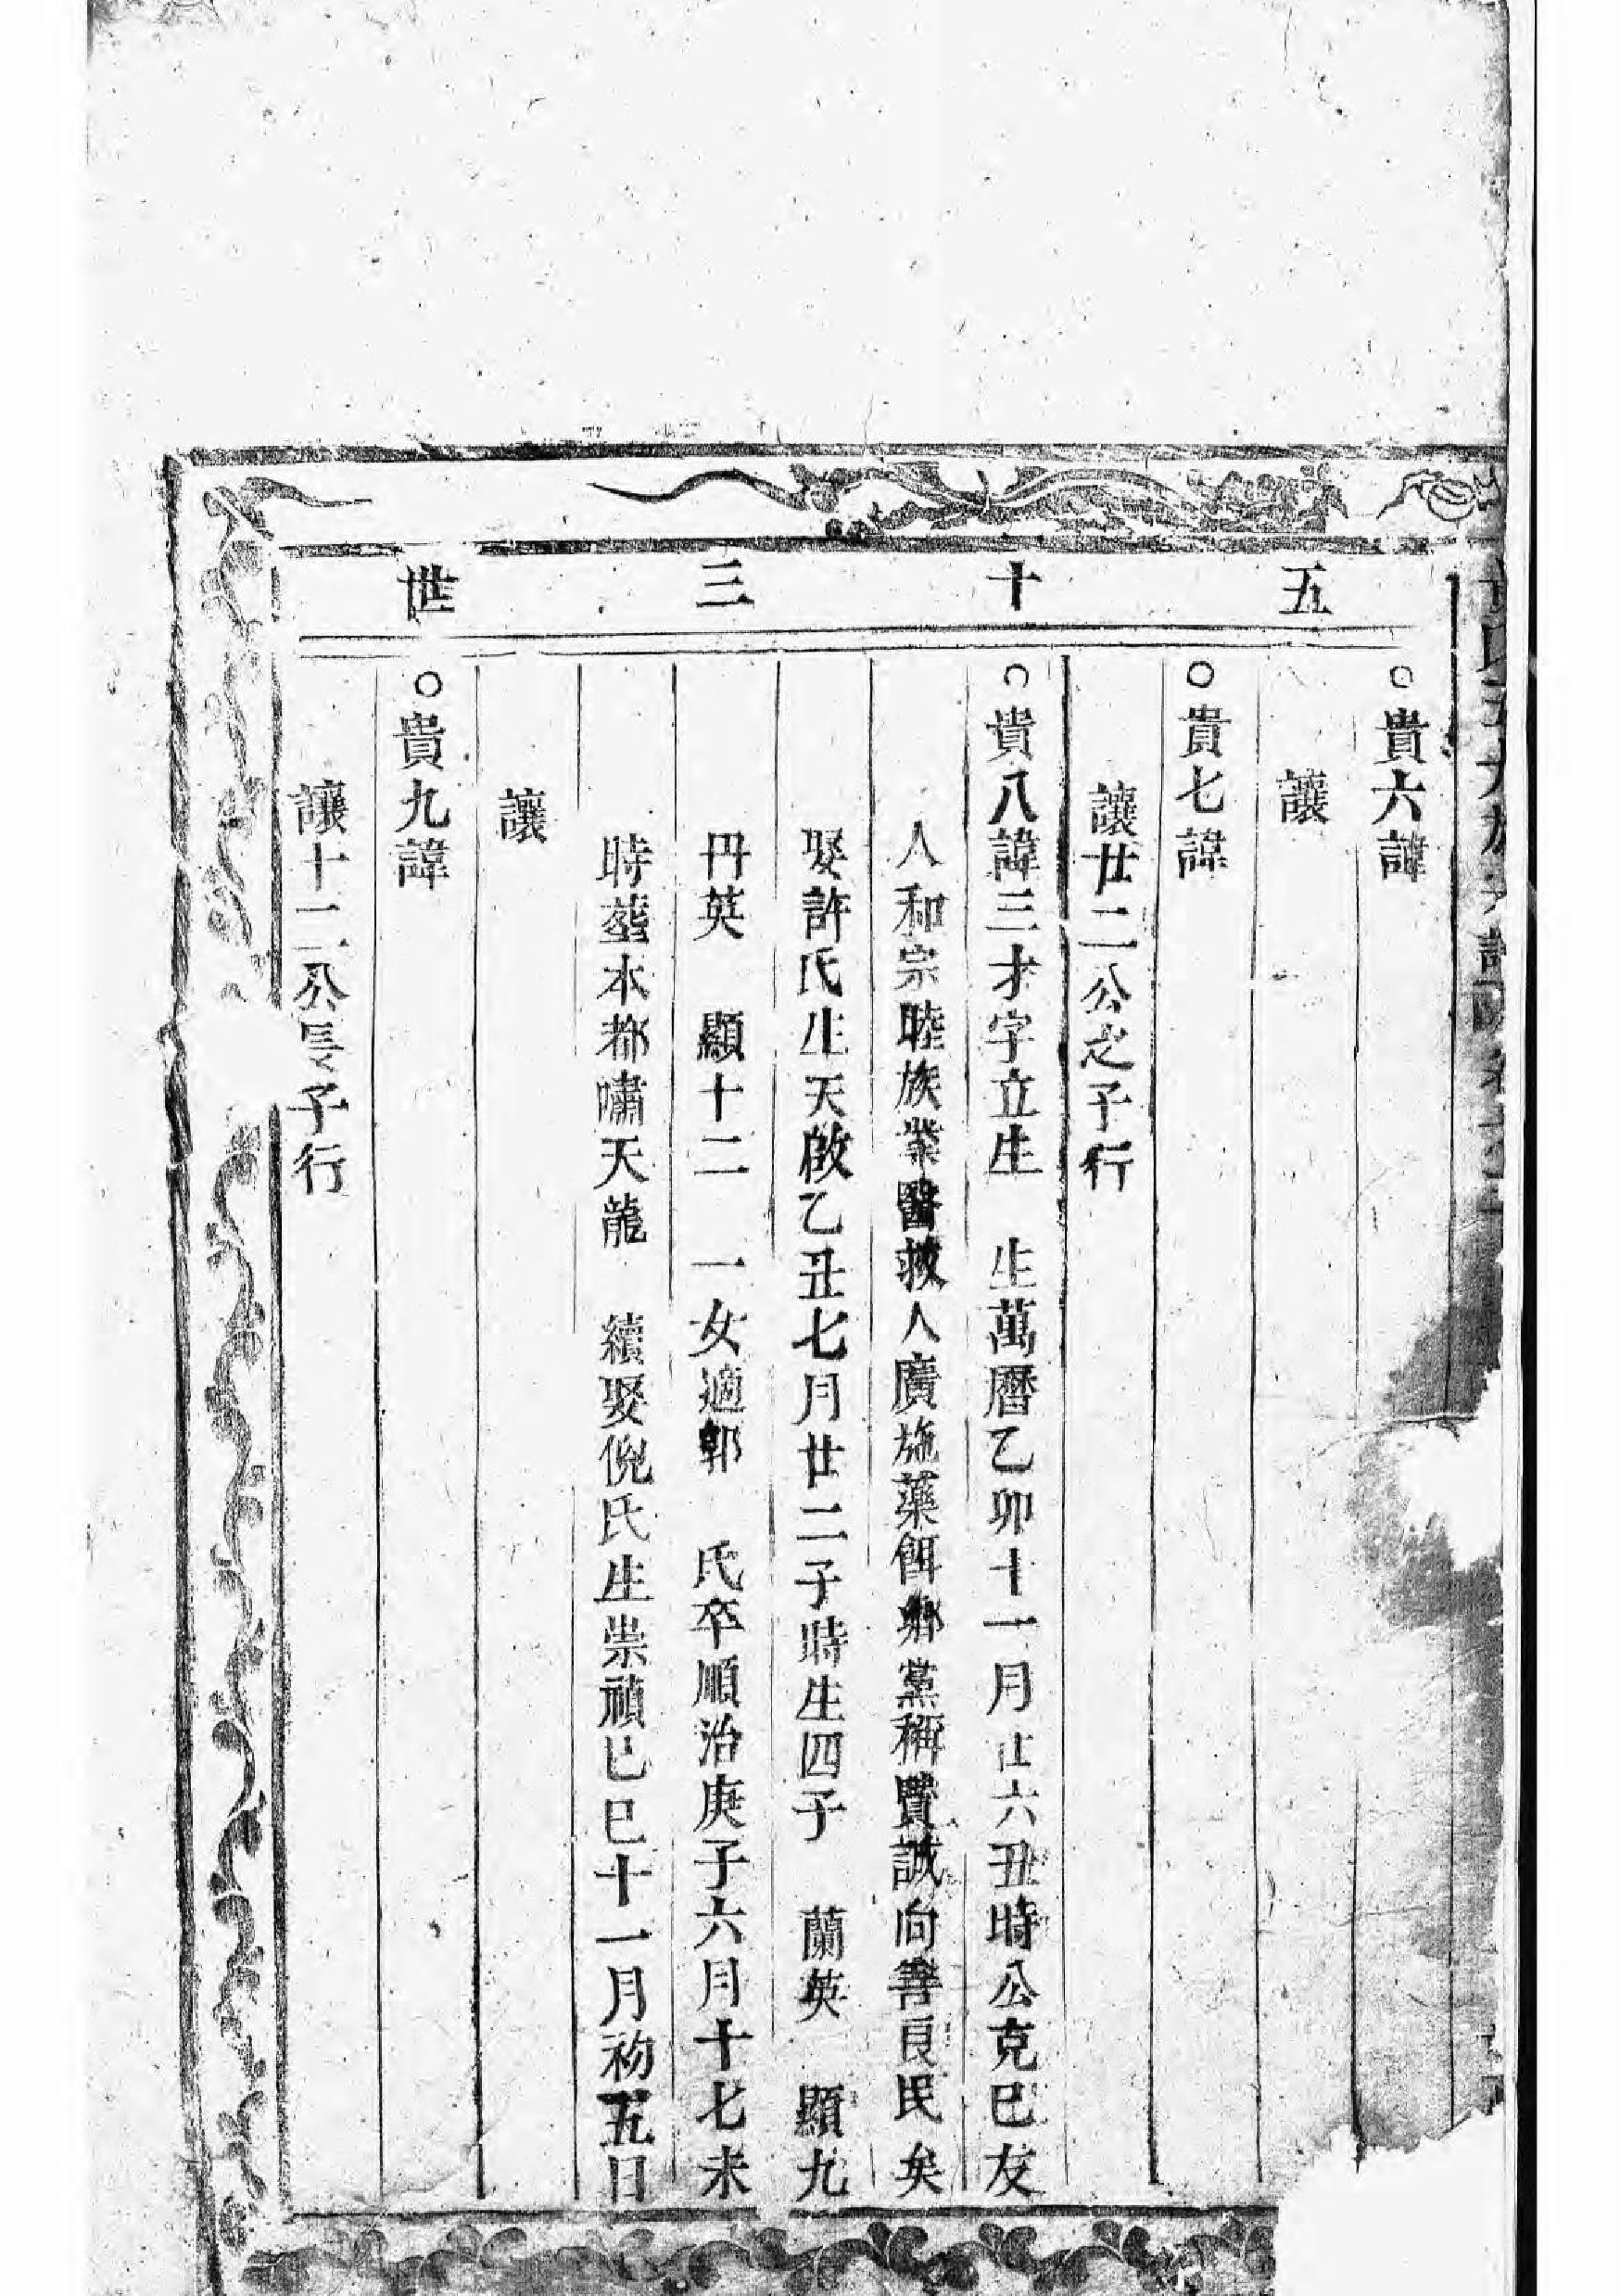 五十三世
○貴六諱
讓
○貴七諱
讓廿二公之子行
○貴八諱三才字立生　生萬曆乙卯十一月廿六丑時公克巳友
人和宗睦族業醫救人廣施藥餌鄉黨稱賢誠向善良民矣
娶許氏生天啟乙丑七月廿二子時生四子　蘭英　顯九
丹英　顯十二　一女適郭　氏卒順治庚子六月十七未
時葬本都嘯天龍　續娶倪氏生崇禎巳巳十一月初五日
讓
○貴九諱
讓十二公長子行